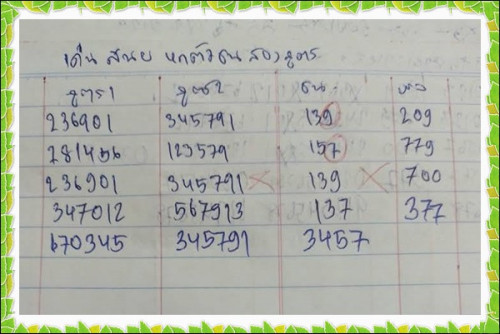 เดิน สนย หกตัวชน สองสูตร
สูตร1 สูตร2 ชน หวย
236901 345791 139 209
281456 123579 157 779
236901 345791 139 700
347012 567913 137 377
670345 345791 3457